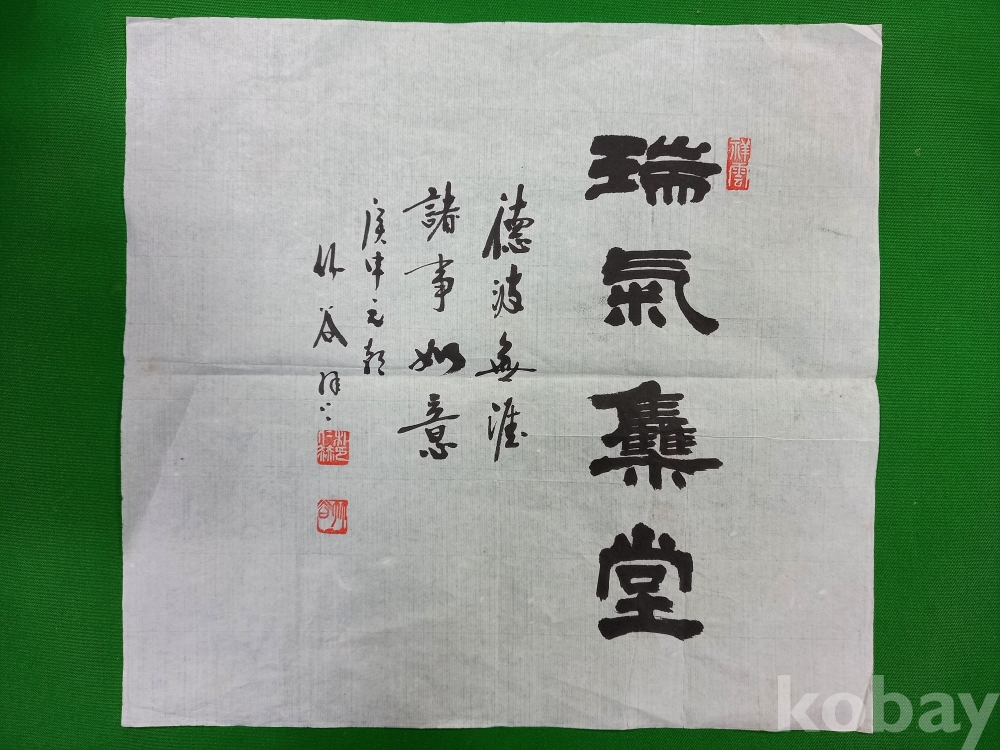 祥雲
瑞氣集堂
德波無涯
諸事如意
庚申元朝
竹谷
kobay